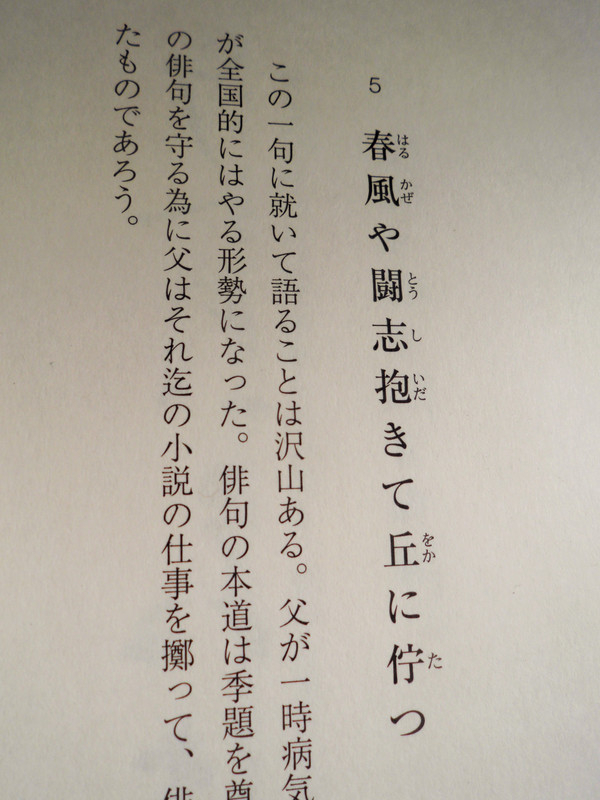 5
春風や闘志抱きて丘に佇つ
はる
かぜ
とう
し
いだ
をか
た
この一句に就いて語ることは沢山ある。父が一時病気
が全国的にはやる形勢になった。俳句の本道は季題を尊
の俳句を守る為に父はそれ迄の小説の仕事を擲って、俳
たものであろう。